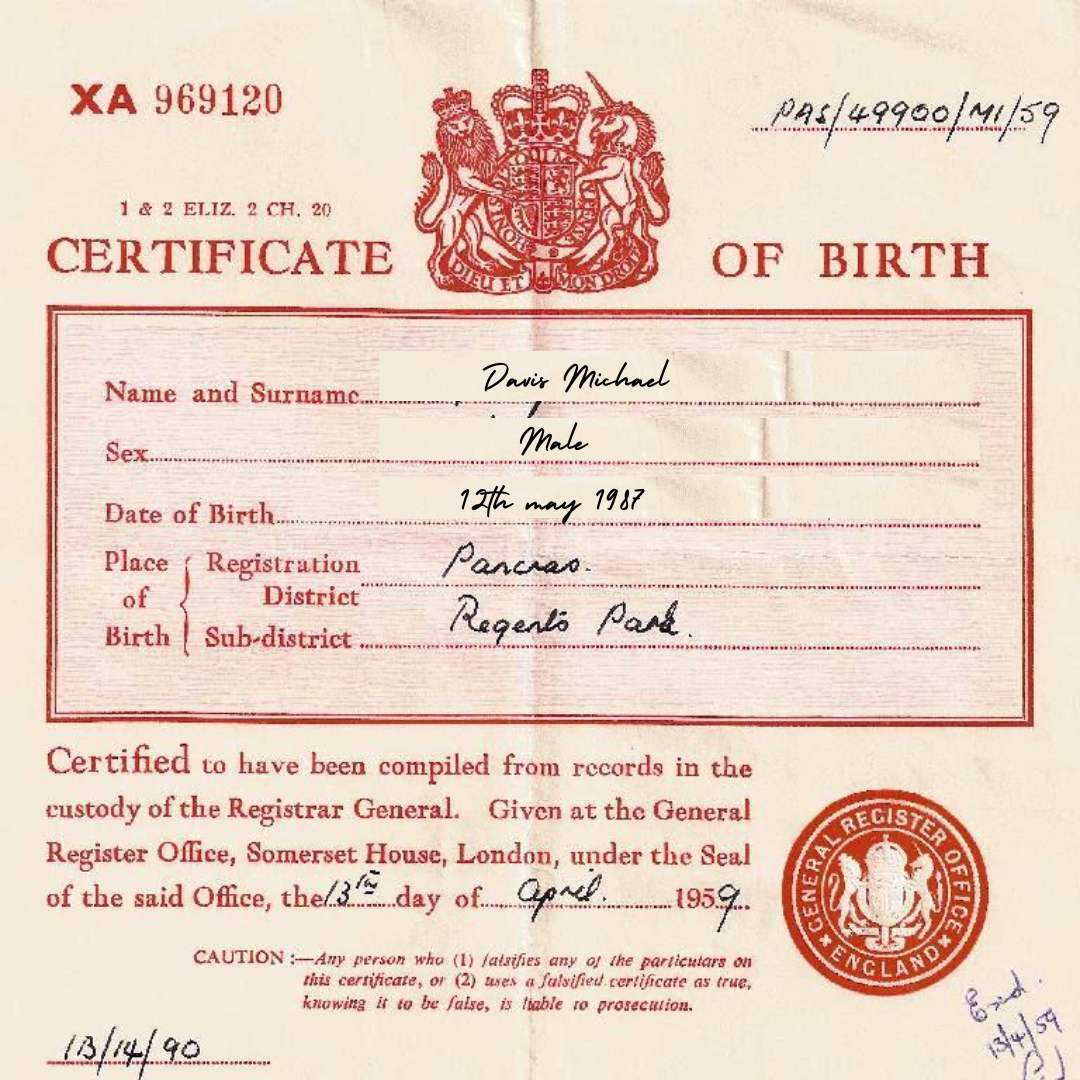 XA 969120
PAS/49900/M1/59
1 & 2 ELIZ. 2 CH. 20
CERTIFICATE OF BIRTH
DIEU ET MON DROIT
Name and Surname Davis Michael
Sex Male
Date of Birth 12th may 1987
Place of Birth { Registration District Pancras.
Sub-district Regents Park.
Certified to have been compiled from records in the
custody of the Registrar General. Given at the General
Register Office, Somerset House, London, under the Seal
of the said Office, the 13th day of April. 1959.
GENERAL REGISTER OFFICE
ENGLAND
CAUTION :—Any person who (1) falsifies any of the particulars on
this certificate, or (2) uses a falsified certificate as true,
knowing it to be false, is liable to prosecution.
13/4/59
13/14/90